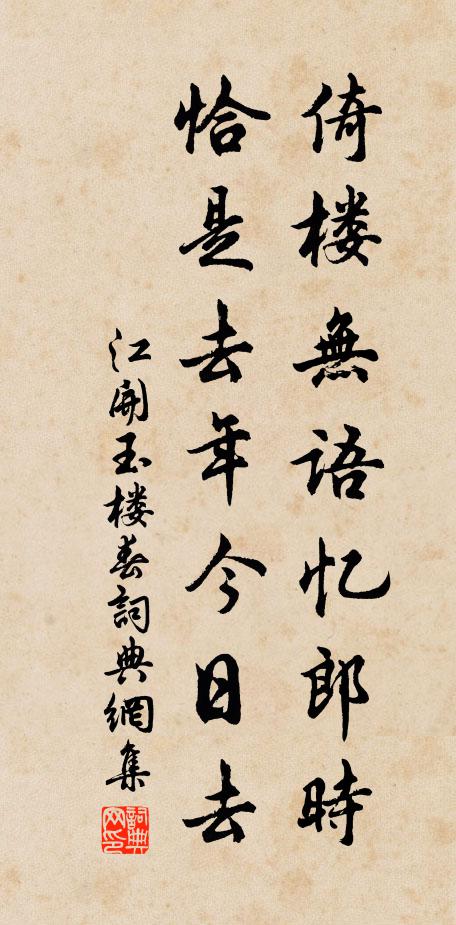 倚楼無語忆郎時
恰是去年今日去
江開玉楼春詞典網集
詞典网印